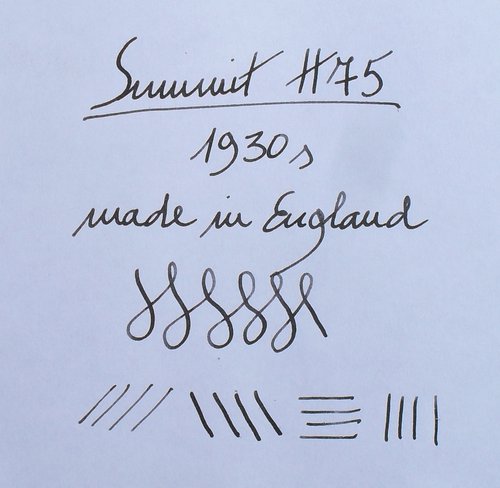 Summit #75
1930s
made in England